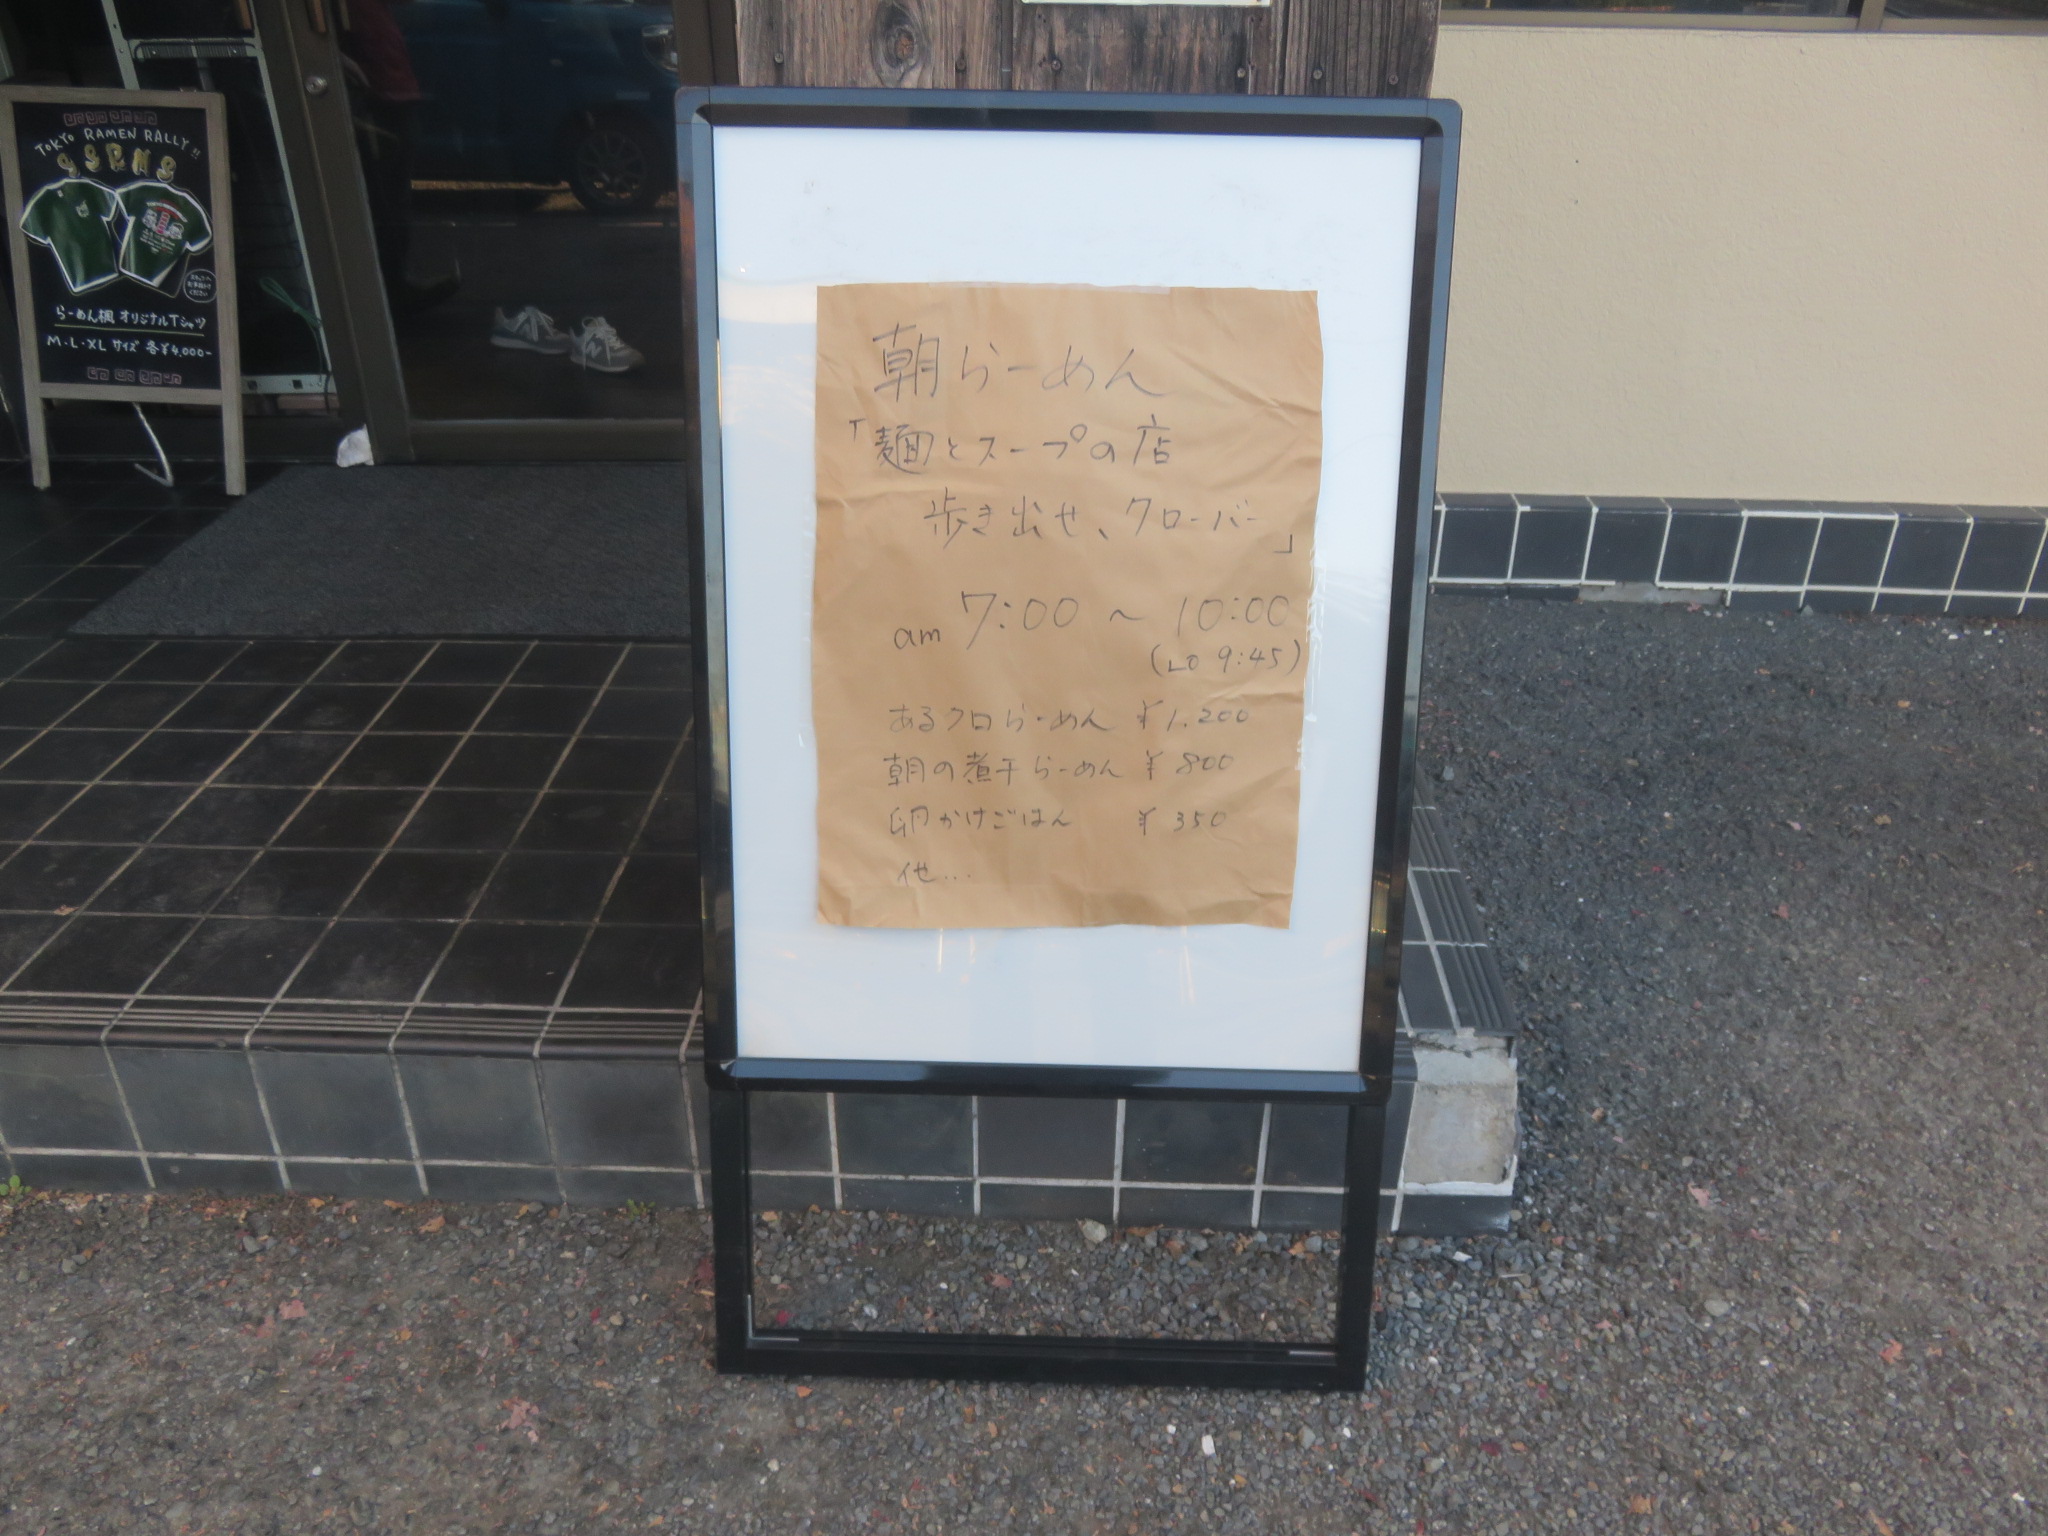 TOKYO RAMEN RALLY!!
らーめん楓 オリジナルTシャツ
M・L・XL サイズ 各¥4,000-
朝らーめん
「麺とスープの店
歩き出せ、クローバー」
am 7:00 ~ 10:00
(LO 9:45)
あるクロらーめん ¥1,200
朝の煮干らーめん ¥800
卵かけごはん ¥350
他...